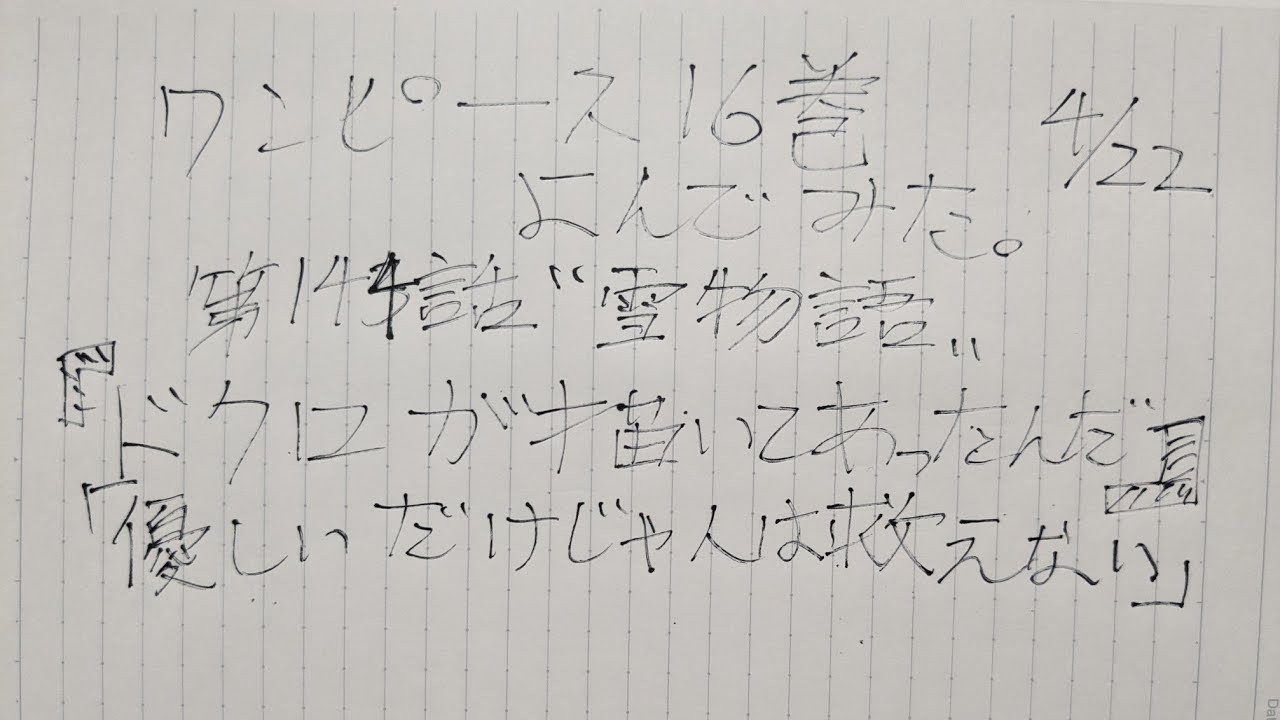 ワンピース16巻 4/22
よんでみた。
第144話“雪物語„
『ドクロが描いてあったんだ』
「優しいだけじゃ人は救えない」
Da